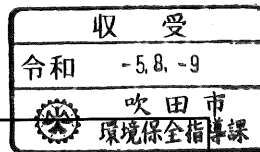 収受
令和 -5.8.-9
吹田市
環境保全指導課